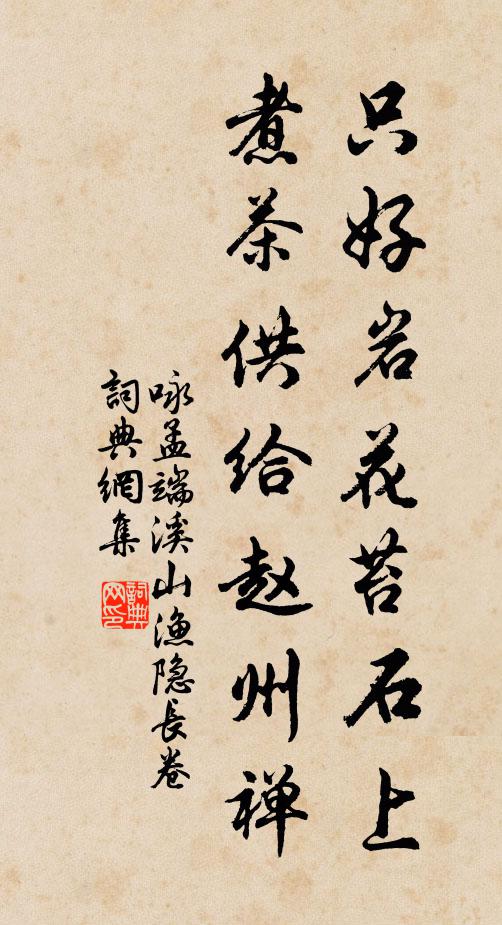 只好岩花苔石上
煮茶供给赵州禅
咏孟端溪山渔隐長卷
詞典網集
詞典
网印